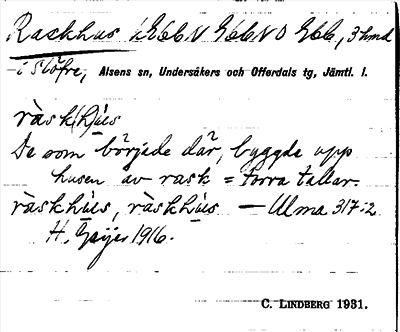 Raskhus 1/2 G66 N G66 N O G66, 3 hmd
i Slöfre, Alsens sn, Undersåkers och Offerdals tg, Jämtl. l.
ràsk(h)ùs
De som började där, byggde upp
husen av rask = torra tallar.
ràskhùs, ràskhùs — Ulma 317:2
H. Geijer 1916.
C. LINDBERG 1931.